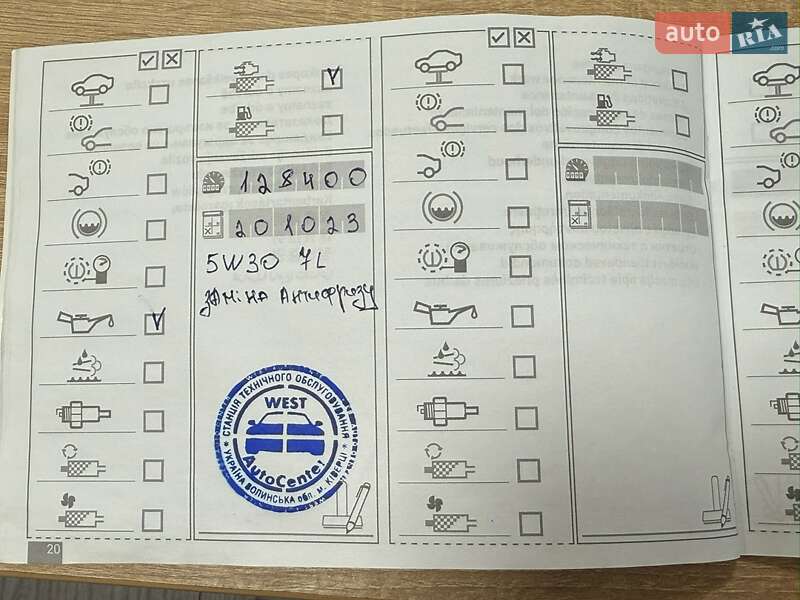 auto RIA
.com
128400
201023
5W30 7L
Заміна Антифризу
СТАНЦІЯ ТЕХНІЧНОГО ОБСЛУГОВУВАННЯ
WEST
AutoCenter
* УКРАЇНА ВОЛИНСЬКА обл. м. КІВЕРЦІ *
20